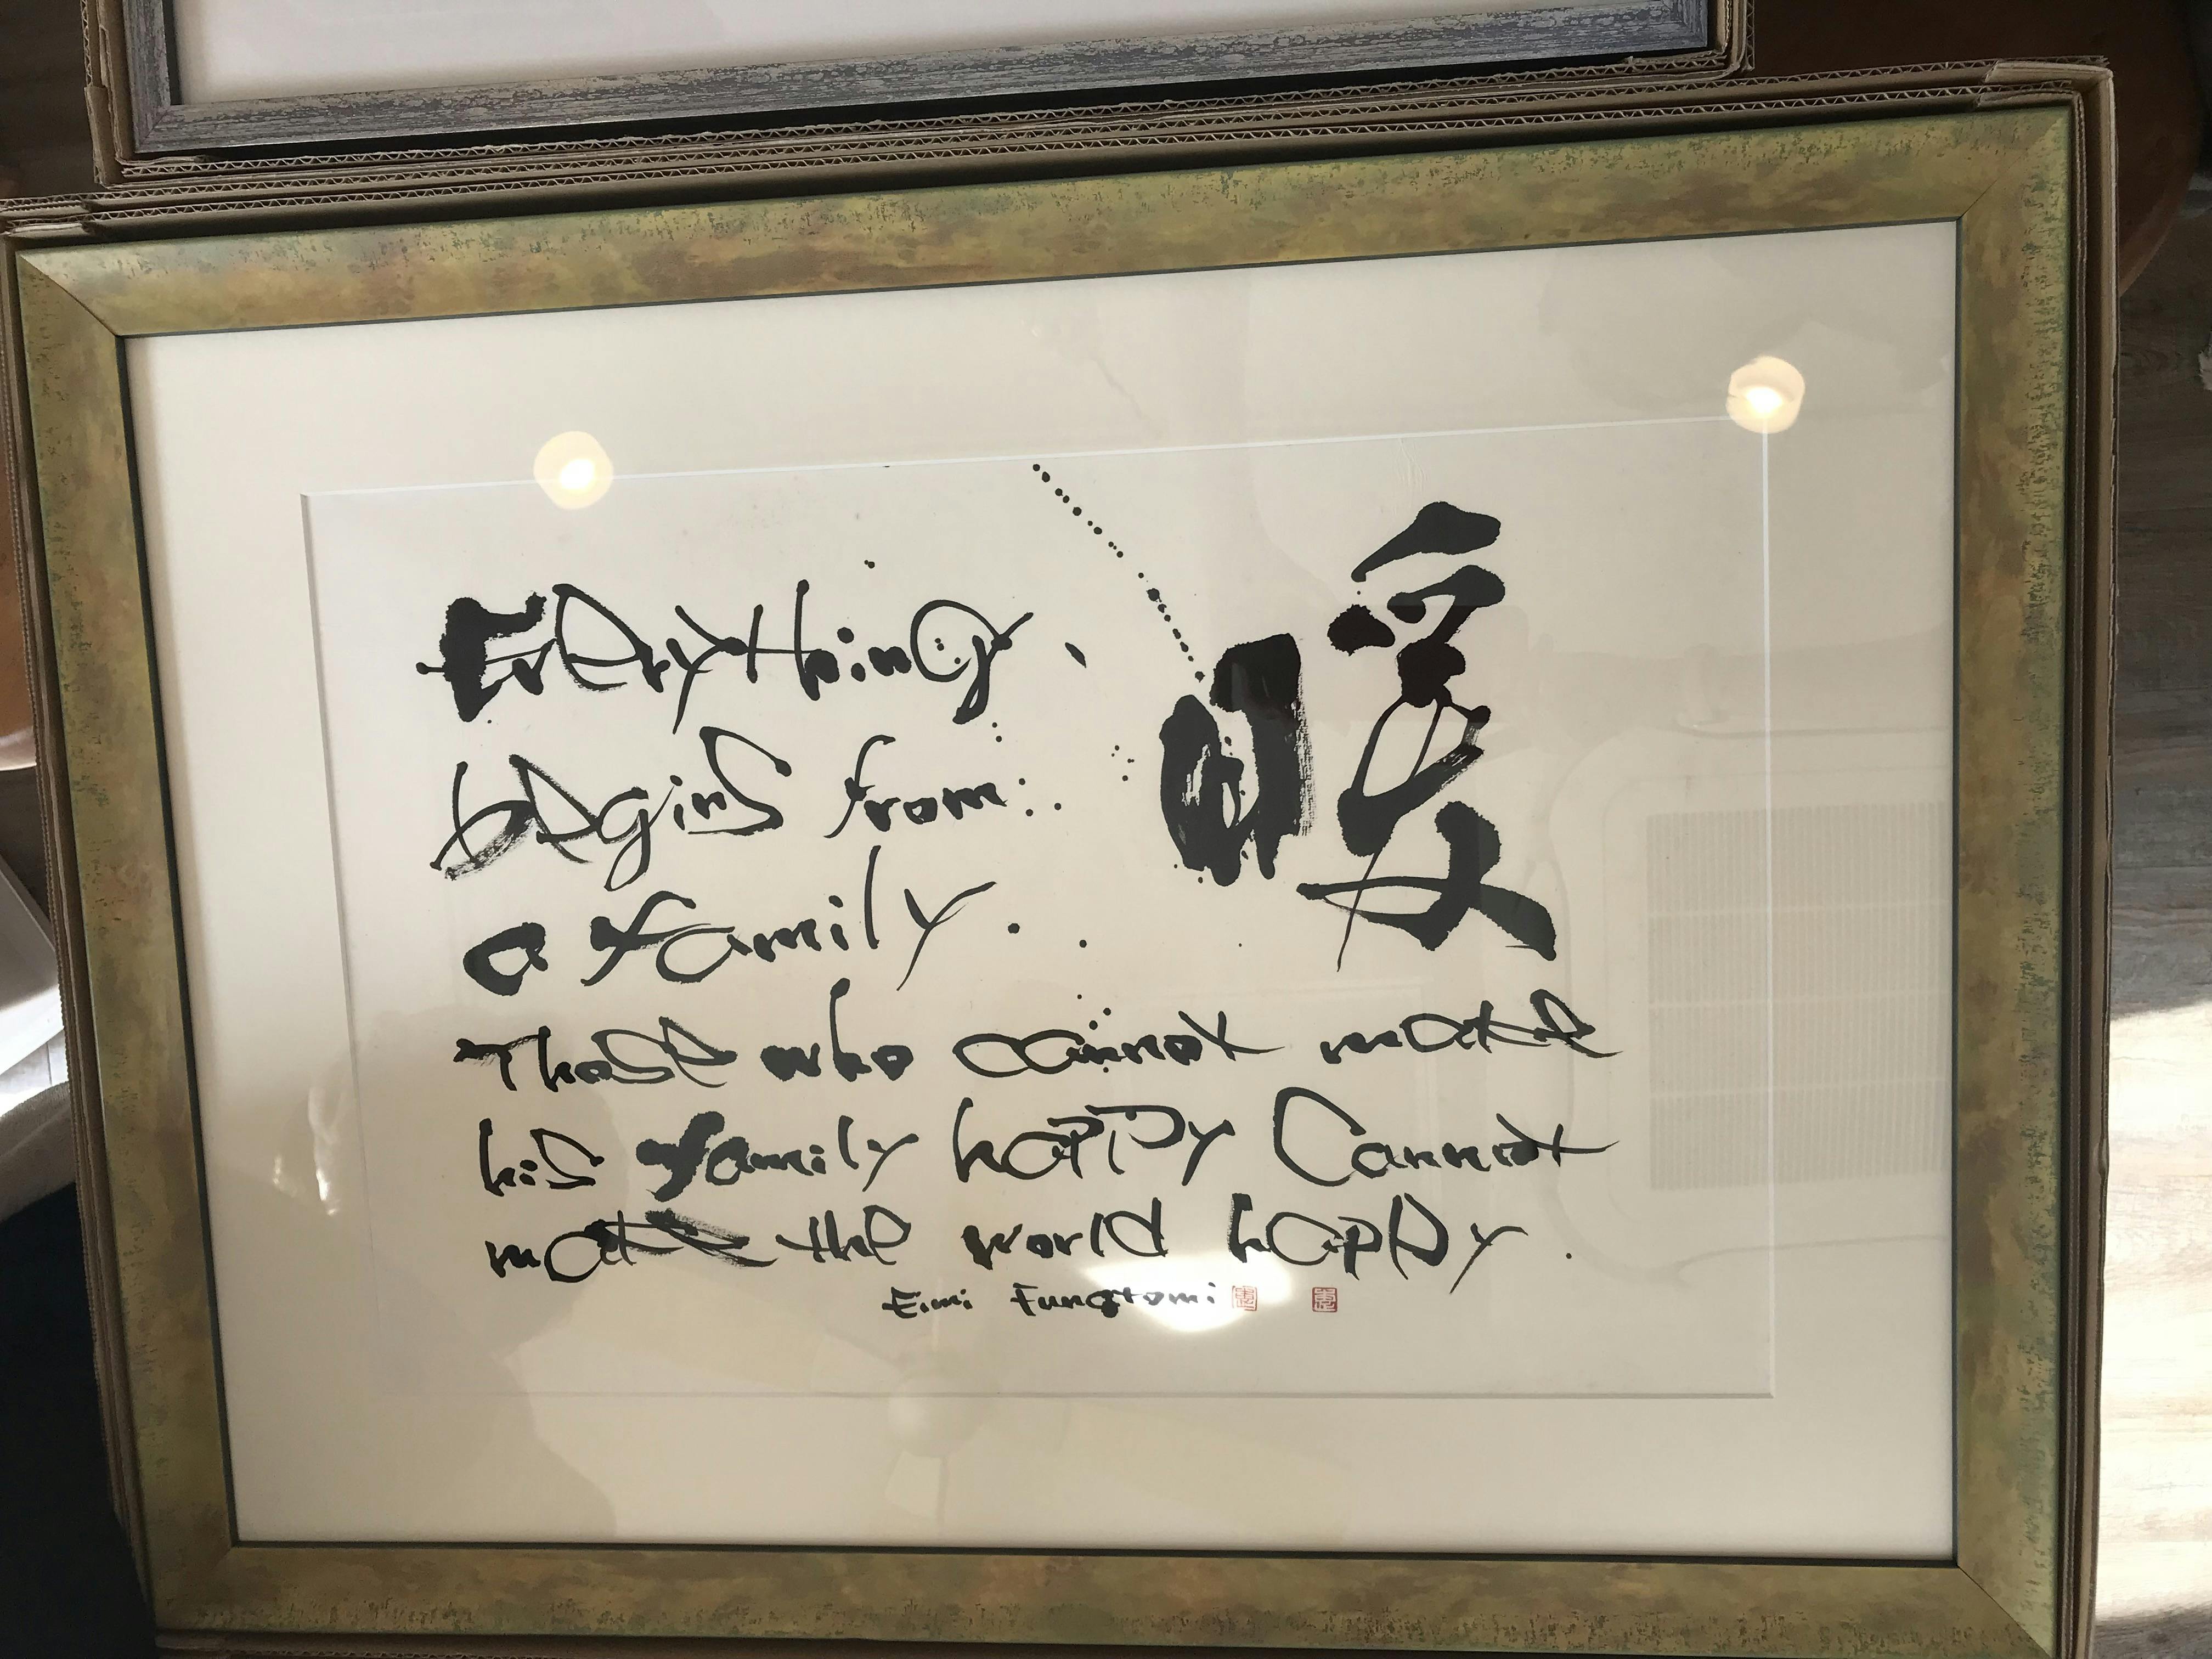 Everything
begins from
a family.
暖
Those who cannot make
his family happy Cannot
make the world happy.
Eimi Funatomi